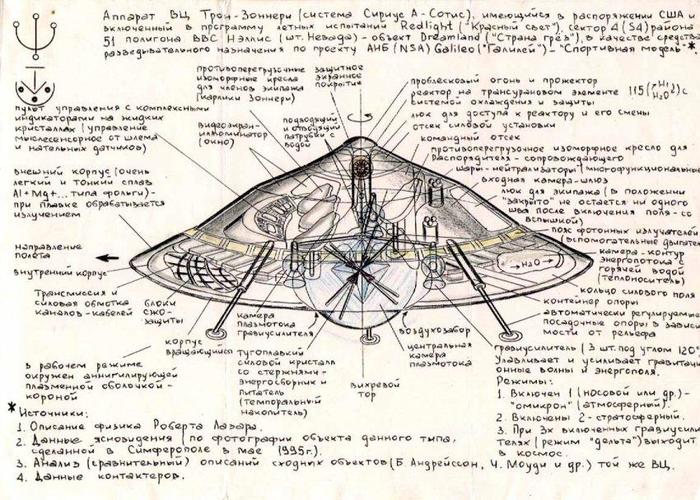 Аппарат ВЦ Трон-Зоннери (система Сириус А-Сотис), имеющийся в распоряжении США и
включенный в программу летных испытаний Redlight ("Красный свет"), сектор 4 (S4) района
51 полигона ВВС Нэллис (шт. Невада) - объект Dreamland ("Страна грёз"), в качестве средства
разведывательного назначения по проекту АНБ (NSA) Galileo ("Галилей") - "Спортивная модель"*
противоперегрузочные
изоморфные кресла
для членов экипажа
(карлики Зоннери)
защитное
экранное
покрытие
проблесковый огонь и прожектор
реактор на трансурановом элементе 115
системой охлаждения и защиты
люк для доступа к реактору и его смены
отсек силовой установки
командный отсек
противоперегрузочное изоморфное кресло для
Распорядителя - сопровождающего
шары-нейтрализаторы (многофункциональные
входная камера-шлюз
люк для экипажа (в положении
"закрыто" не остается ни одного
шва после включения поля - со
вспышкой)
пояс фотонных излучателей
(вспомогательные двигат
камера-контур
энергопотока с
горячей водой
(теплоноситель)
кольцо силового поля
контейнер опоры
автоматически регулируемые
посадочные опоры в зависи
мости от рельефа
пульт управления с комплексными
индикаторами на жидких
кристаллах (управление
мыслесенсорное от шлема
и нательных датчиков)
видеоэкран-
иллюминатор
(окно)
подводящий
и отводящий
патрубки с
водой
внешний корпус (очень
легкий и тонкий сплав
Al+Mg+... типа фольги) -
при плавке обрабатывается
излучением
направление
полета
внутренний корпус
H2O
Трансмиссия и
силовая обмотка
каналов-кабелей
блоки
СЖО-
защиты
корпус
вращающийся
камера
плазмотока
гравиусилителя
тугоплавкий
силовой кристалл
со стержнями-
энергосборник и
питатель
(темпоральный
накопитель)
вихревой
тор
воздухозабор
центральная
камера
плазмотока
гравиусилитель (3 шт. под углом 120°
Улавливает и усиливает гравитаци
онные волны и энергополя.
Режимы:
1. Включен 1 (носовой или др.) -
"омикрон" (атмосферный).
2. Включены 2 - стратосферный.
3. При 3х включенных гравиусили
телях (режим "дельта") выходит
в космос.
в рабочем режиме
окружен аннигилирующей
плазменной оболочкой-
короной
* Источники:
1. Описание физика Роберта Лазара.
2. Данные ясновидения (по фотографии объекта данного типа,
сделанной в Симферополе в мае 1995г.).
3. Анализ (сравнительный) описаний сходных объектов (Б. Андрейссон, Ч. Моуди и др.) той же ВЦ.
4. Данные контактеров.